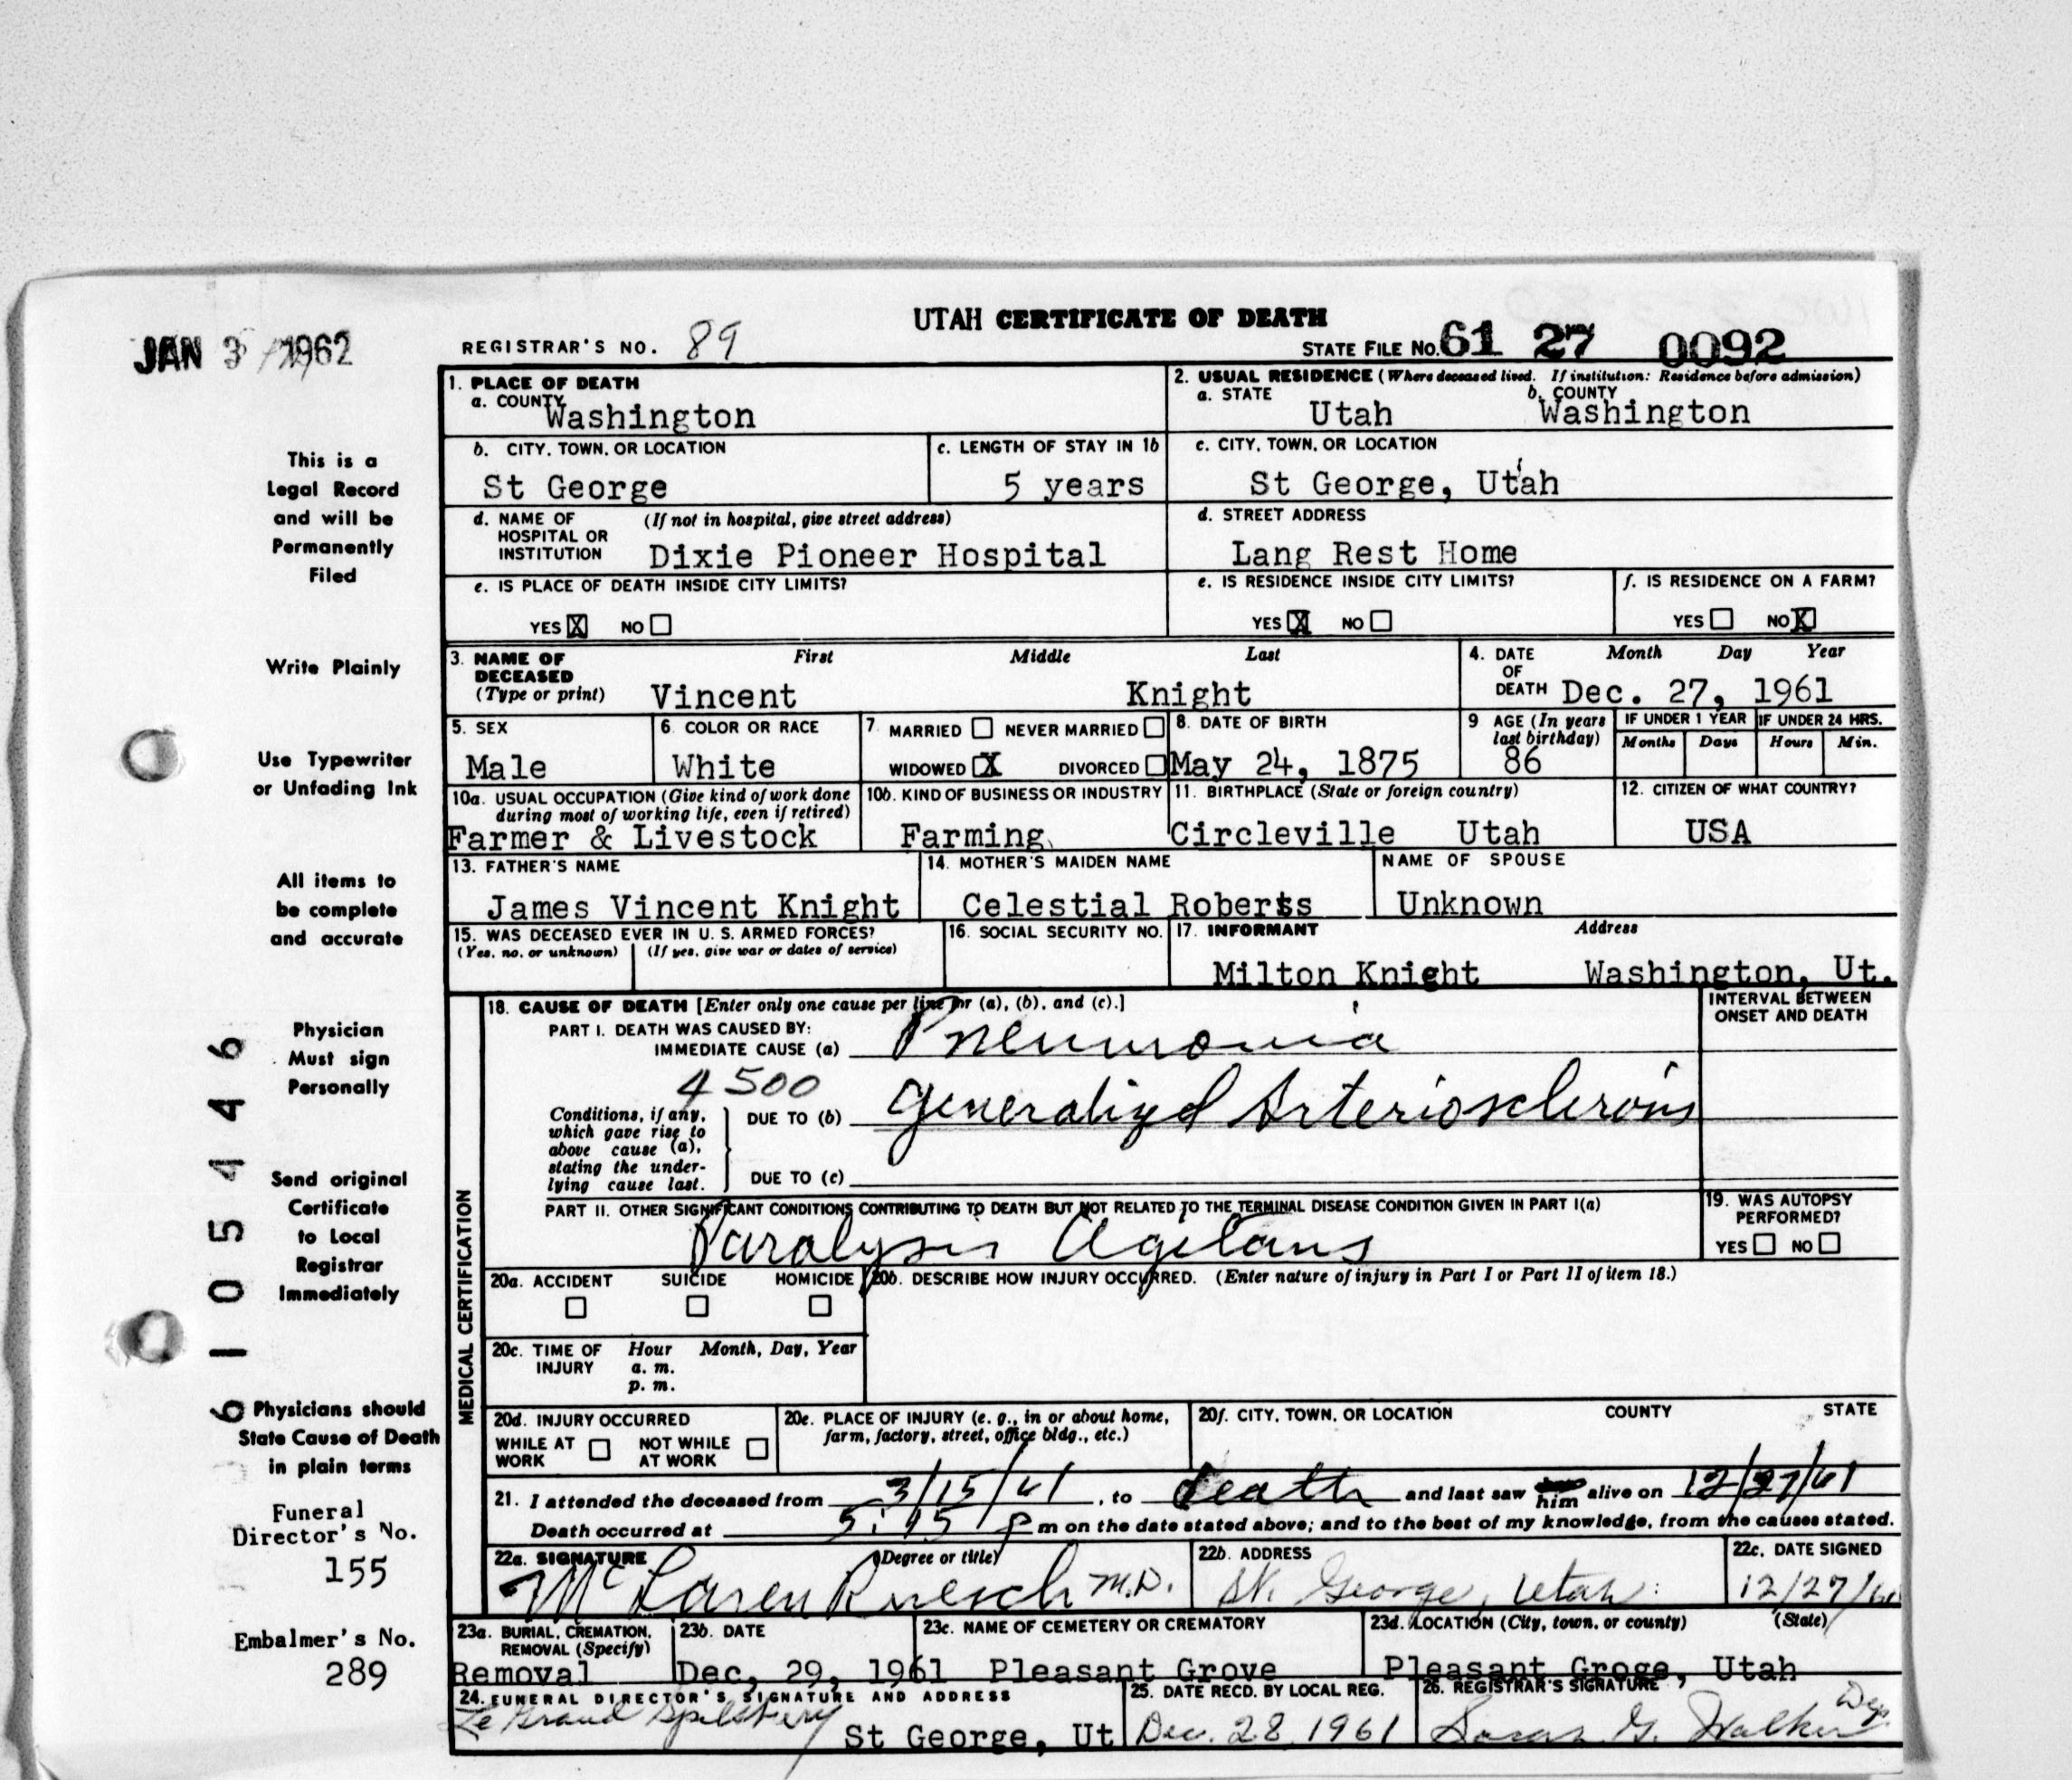 UTAH CERTIFICATE OF DEATH
JAN 3 1962
REGISTRAR'S NO. 89
STATE FILE NO. 61 27 0092
1. PLACE OF DEATH
a. COUNTY
Washington
2. USUAL RESIDENCE (Where deceased lived. If institution: Residence before admission)
a. STATE b. COUNTY
Utah Washington
b. CITY, TOWN, OR LOCATION
St George
c. LENGTH OF STAY IN 1b
5 years
c. CITY, TOWN, OR LOCATION
St George, Utah
d. NAME OF (If not in hospital, give street address)
HOSPITAL OR
INSTITUTION Dixie Pioneer Hospital
d. STREET ADDRESS
Lang Rest Home
e. IS PLACE OF DEATH INSIDE CITY LIMITS?
YES X NO
e. IS RESIDENCE INSIDE CITY LIMITS?
YES X NO
f. IS RESIDENCE ON A FARM?
YES NO X
3. NAME OF First Middle Last
DECEASED
(Type or print) Vincent Knight
4. DATE Month Day Year
OF
DEATH Dec. 27, 1961
5. SEX
Male
6. COLOR OR RACE
White
7. MARRIED NEVER MARRIED
WIDOWED X DIVORCED
8. DATE OF BIRTH
May 24, 1875
9 AGE (In years
last birthday)
86
IF UNDER 1 YEAR IF UNDER 24 HRS.
Months Days Hours Min.
10a. USUAL OCCUPATION (Give kind of work done
during most of working life, even if retired)
Farmer & Livestock
10b. KIND OF BUSINESS OR INDUSTRY
Farming
11. BIRTHPLACE (State or foreign country)
Circleville Utah
12. CITIZEN OF WHAT COUNTRY?
USA
13. FATHER'S NAME
James Vincent Knight
14. MOTHER'S MAIDEN NAME
Celestial Roberts
NAME OF SPOUSE
Unknown
15. WAS DECEASED EVER IN U. S. ARMED FORCES?
(Yes, no, or unknown) (If yes, give war or dates of service)
16. SOCIAL SECURITY NO.
17. INFORMANT Address
Milton Knight Washington, Ut.
MEDICAL CERTIFICATION
18. CAUSE OF DEATH [Enter only one cause per line for (a), (b), and (c).]
INTERVAL BETWEEN
ONSET AND DEATH
PART I. DEATH WAS CAUSED BY:
IMMEDIATE CAUSE (a) Pneumonia
4500
Conditions, if any,
which gave rise to
above cause (a),
stating the under-
lying cause last.
DUE TO (b) generalized Arteriosclerosis
DUE TO (c)
PART II. OTHER SIGNIFICANT CONDITIONS CONTRIBUTING TO DEATH BUT NOT RELATED TO THE TERMINAL DISEASE CONDITION GIVEN IN PART I(a)
Paralysis Agitans
19. WAS AUTOPSY
PERFORMED?
YES NO
20a. ACCIDENT SUICIDE HOMICIDE
20b. DESCRIBE HOW INJURY OCCURRED. (Enter nature of injury in Part I or Part II of item 18.)
20c. TIME OF Hour Month, Day, Year
INJURY a. m.
p. m.
20d. INJURY OCCURRED
WHILE AT NOT WHILE
WORK AT WORK
20e. PLACE OF INJURY (e. g., in or about home,
farm, factory, street, office bldg., etc.)
20f. CITY, TOWN, OR LOCATION COUNTY STATE
21. I attended the deceased from 3/15/61, to death and last saw him alive on 12/27/61
Death occurred at 5:15 P m on the date stated above; and to the best of my knowledge, from the causes stated.
22a. SIGNATURE (Degree or title)
McLaren Ruesch M.D.
22b. ADDRESS
St. George, Utah
22c. DATE SIGNED
12/27/61
23a. BURIAL, CREMATION,
REMOVAL (Specify)
Removal
23b. DATE
Dec, 29, 1961
23c. NAME OF CEMETERY OR CREMATORY
Pleasant Grove
23d. LOCATION (City, town, or county) (State)
Pleasant Groge, Utah
24. FUNERAL DIRECTOR'S SIGNATURE AND ADDRESS
LeGrand Spilsbury
St George, Ut
25. DATE RECD. BY LOCAL REG.
Dec. 28 1961
26. REGISTRAR'S SIGNATURE
G. Walker Dep.
This is a
Legal Record
and will be
Permanently
Filed
Write Plainly
Use Typewriter
or Unfading Ink
All items to
be complete
and accurate
Physician
Must sign
Personally
Send original
Certificate
to Local
Registrar
Immediately
Physicians should
State Cause of Death
in plain terms
Funeral
Director's No.
155
Embalmer's No.
289
6105446